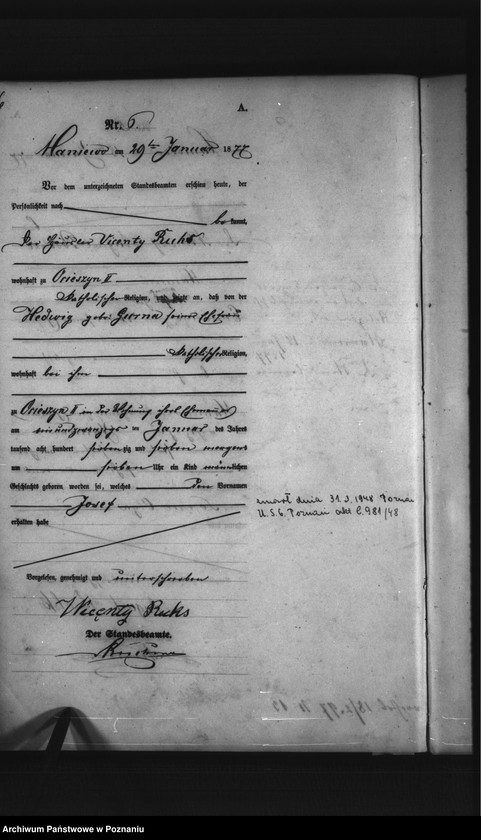 A.
Nr. 6.
Maniewo am 29ten Januar 1877
Vor dem unterzeichneten Standesbeamten erschien heute, der
Persönlichkeit nach
be kannt,
der Häusler Vicenty Ruks
wohnhaft zu Ocieszyn II
katholischer Religion, und zeigte an, daß von der
Hedwig geb: Gurna seiner Ehefrau
katholischer Religion,
wohnhaft bei ihm
zu Ocieszyn II in der Wohnung ihres Ehemannes
am einundzwanzigs ten Januar des Jahres
tausend acht hundert siebenzig und sieben morgens
um sieben Uhr ein Kind männlichen
Geschlechts geboren worden sei, welches den Vornamen
Josef
erhalten habe
zmarł dnia 31.3.1948 Poznań
U.S.C. Poznań akt l. 981/48
Vorgelesen, genehmigt und unterschrieben
Wicenty Ruks
Der Standesbeamte.
Archiwum Państwowe w Poznaniu